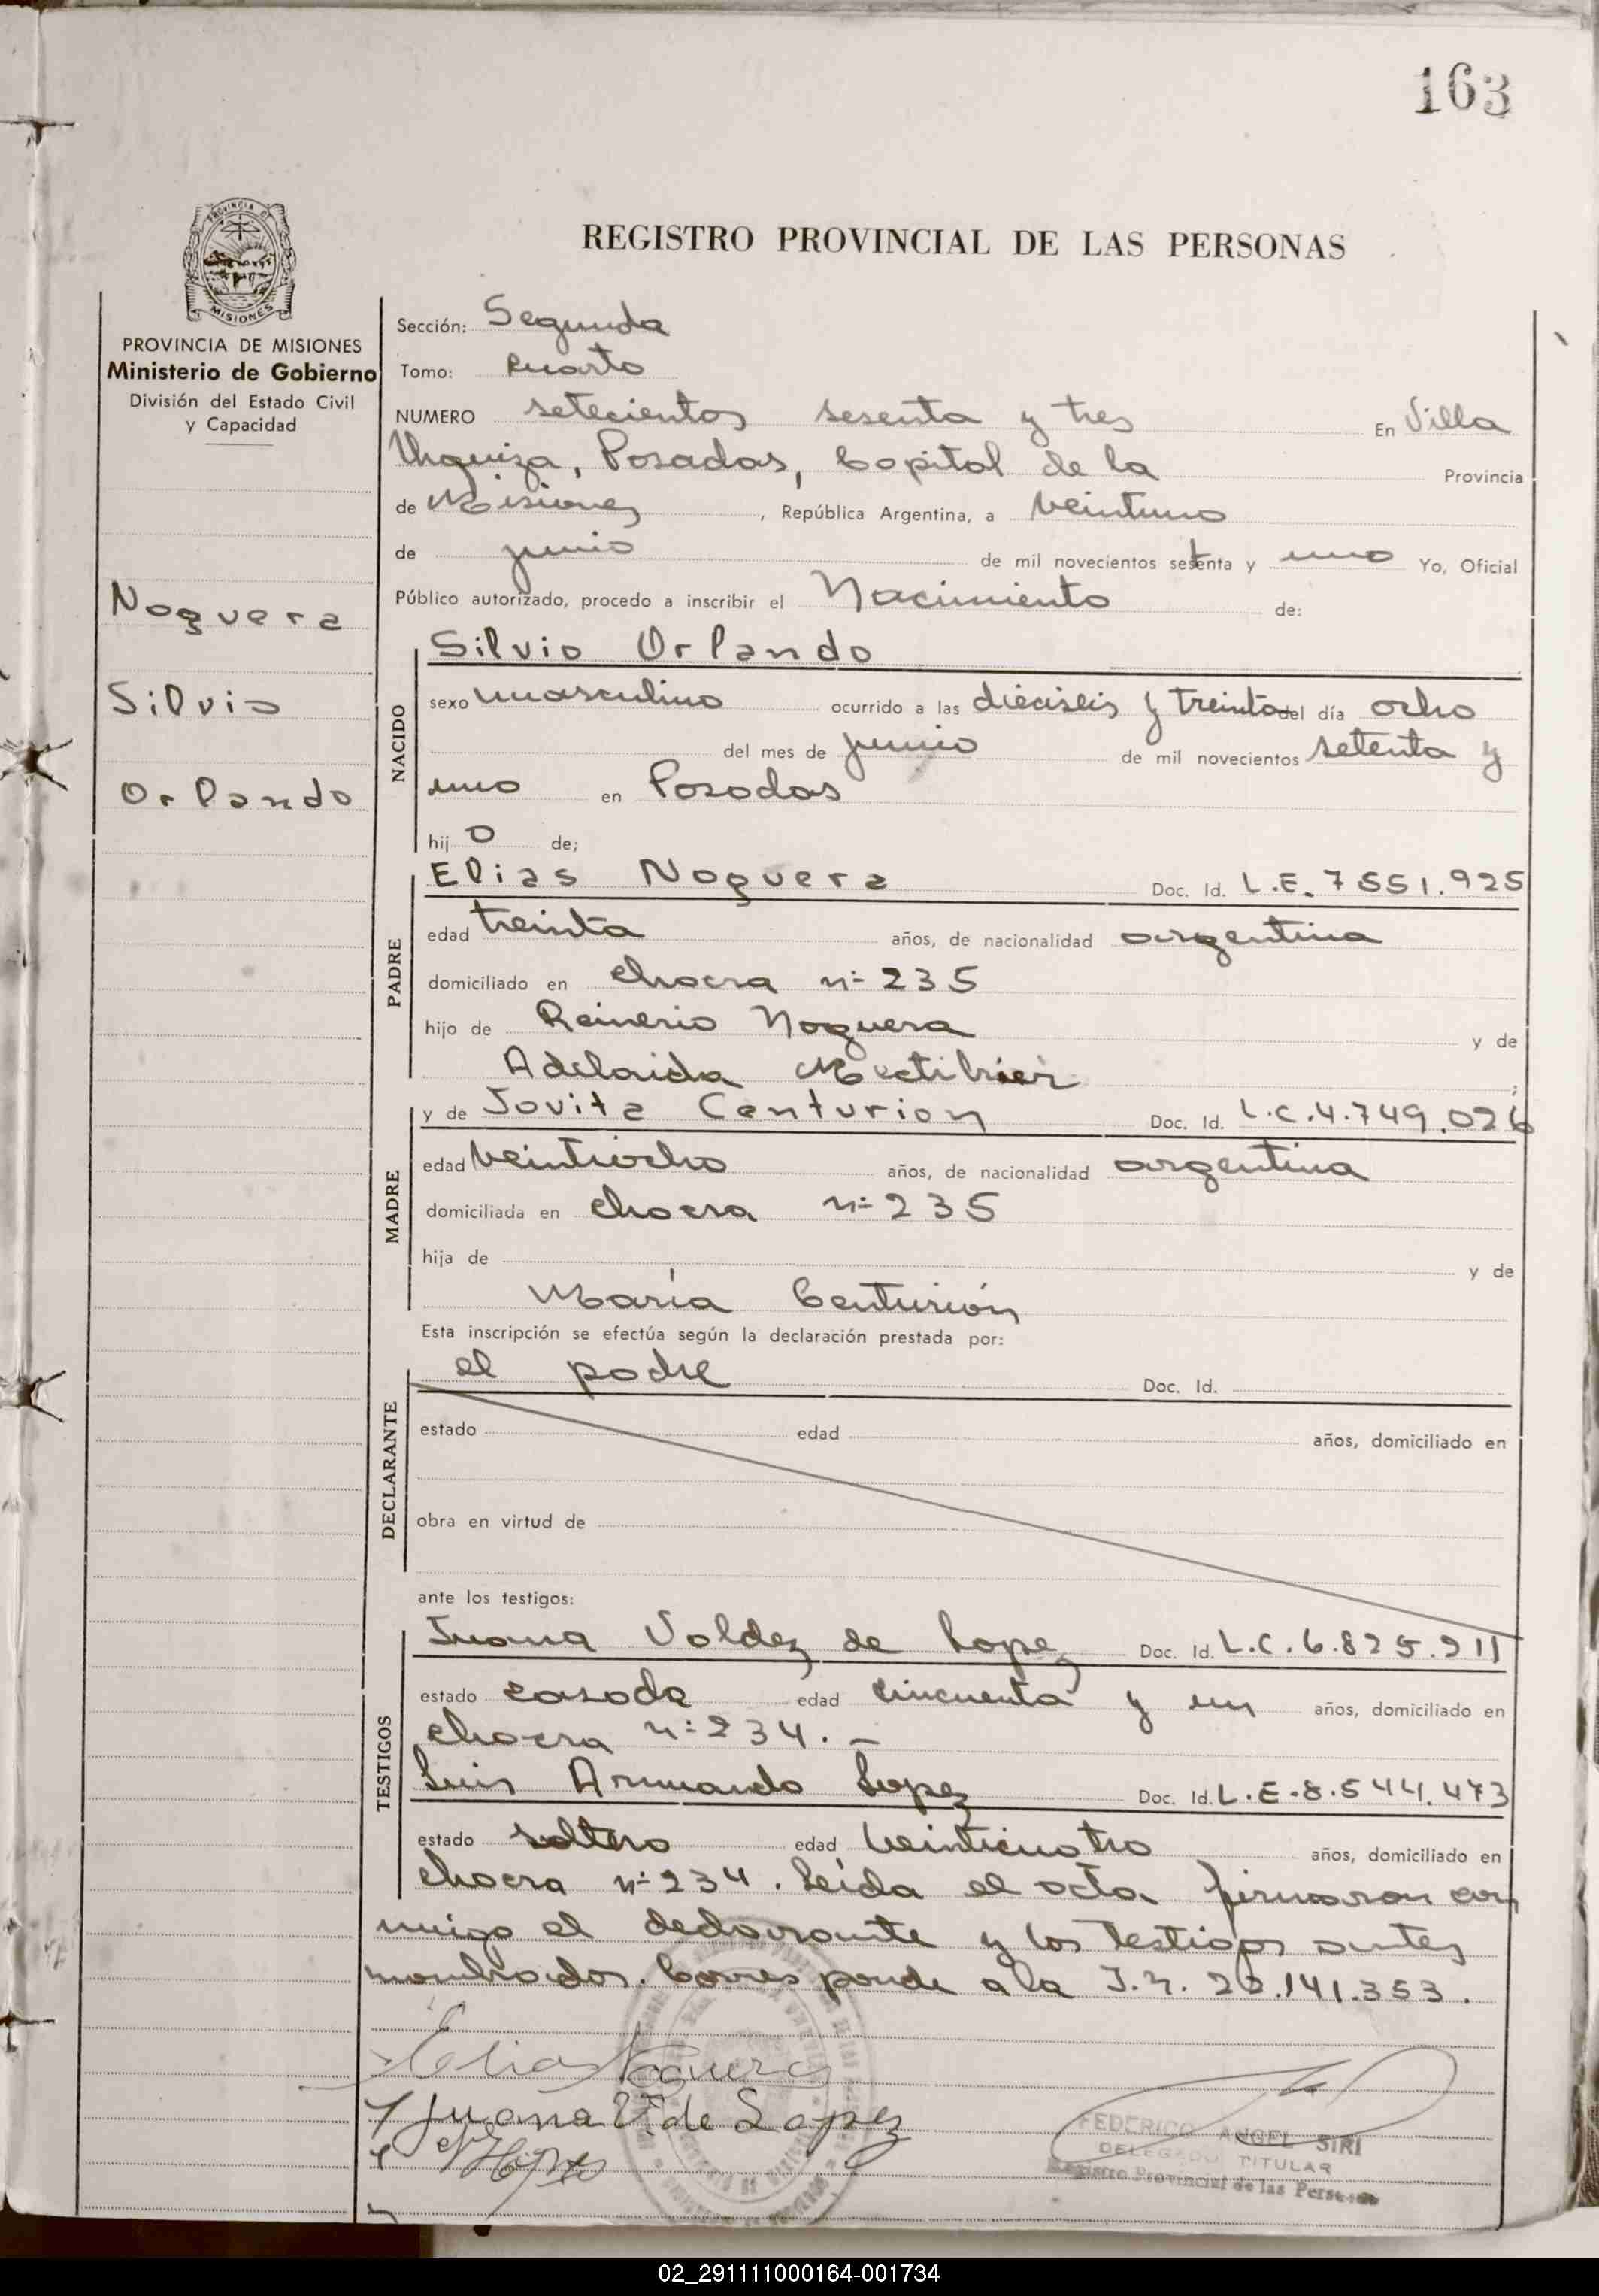 163
PROVINCIA DE
MISIONES
REGISTRO PROVINCIAL DE LAS PERSONAS
PROVINCIA DE MISIONES
Ministerio de Gobierno
División del Estado Civil
y Capacidad
Noguera
Silvio
Orlando
Sección: Segunda
Tomo: Cuarto
NUMERO setecientos sesenta y tres En Villa
Urquiza, Posadas, Capital de la Provincia
de Misiones, República Argentina, a veintiuno
de junio de mil novecientos setenta y uno Yo, Oficial
Público autorizado, procedo a inscribir el Nacimiento de:
NACIDO
Silvio Orlando
sexo masculino ocurrido a las dieciseis y treinta del día ocho
del mes de junio de mil novecientos setenta y
uno en Posadas
hij o de;
PADRE
Elias Noguera Doc. Id. L.E. 7551.925
edad treinta años, de nacionalidad argentina
domiciliado en chacra n° 235
hijo de Reinerio Noguera y de
Adelaida ;
MADRE
y de Jovita Centurion Doc. Id. L.C.4.749.026
edad veintiocho años, de nacionalidad argentina
domiciliada en chacra n° 235
hija de y de
María Centurión
Esta inscripción se efectúa según la declaración prestada por:
DECLARANTE
el padre Doc. Id.
estado edad años, domiciliado en
obra en virtud de
ante los testigos:
TESTIGOS
Juana Valdez de Lopez Doc. Id. L.C.6.825.211
estado casada edad cincuenta y un años, domiciliado en
chacra n° 234. –
Luis Armando Lopez Doc. Id. L.E.8.544.473
estado soltero edad veinticuatro años, domiciliado en
chacra n° 234. Leída el acta firmaron con
migo el declarante y los testigos antes
nombrados. Corresponde a la I.N. 22.141.353.
Elias Noguera
Juana V. de Lopez
FEDERICO ANGEL SIRI
DELEGADO TITULAR
Registro Provincial de las Personas
02_291111000164-001734